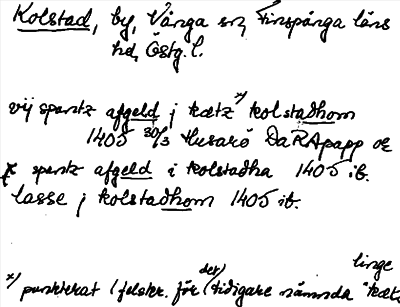 Kolstad, by, Vånga sn, Finspånga läns
hd, Östg. l.
vij spantz afgeld j kætz x) kolstadhom
1405 30/3 Husarö DaRApapp oc
x spantz afgeld i kolstadha 1405 ib.
lasse j kolstadhom 1405 ib.
linge
x) punkterat (felskr. för (det) tidigare nämnda kæt